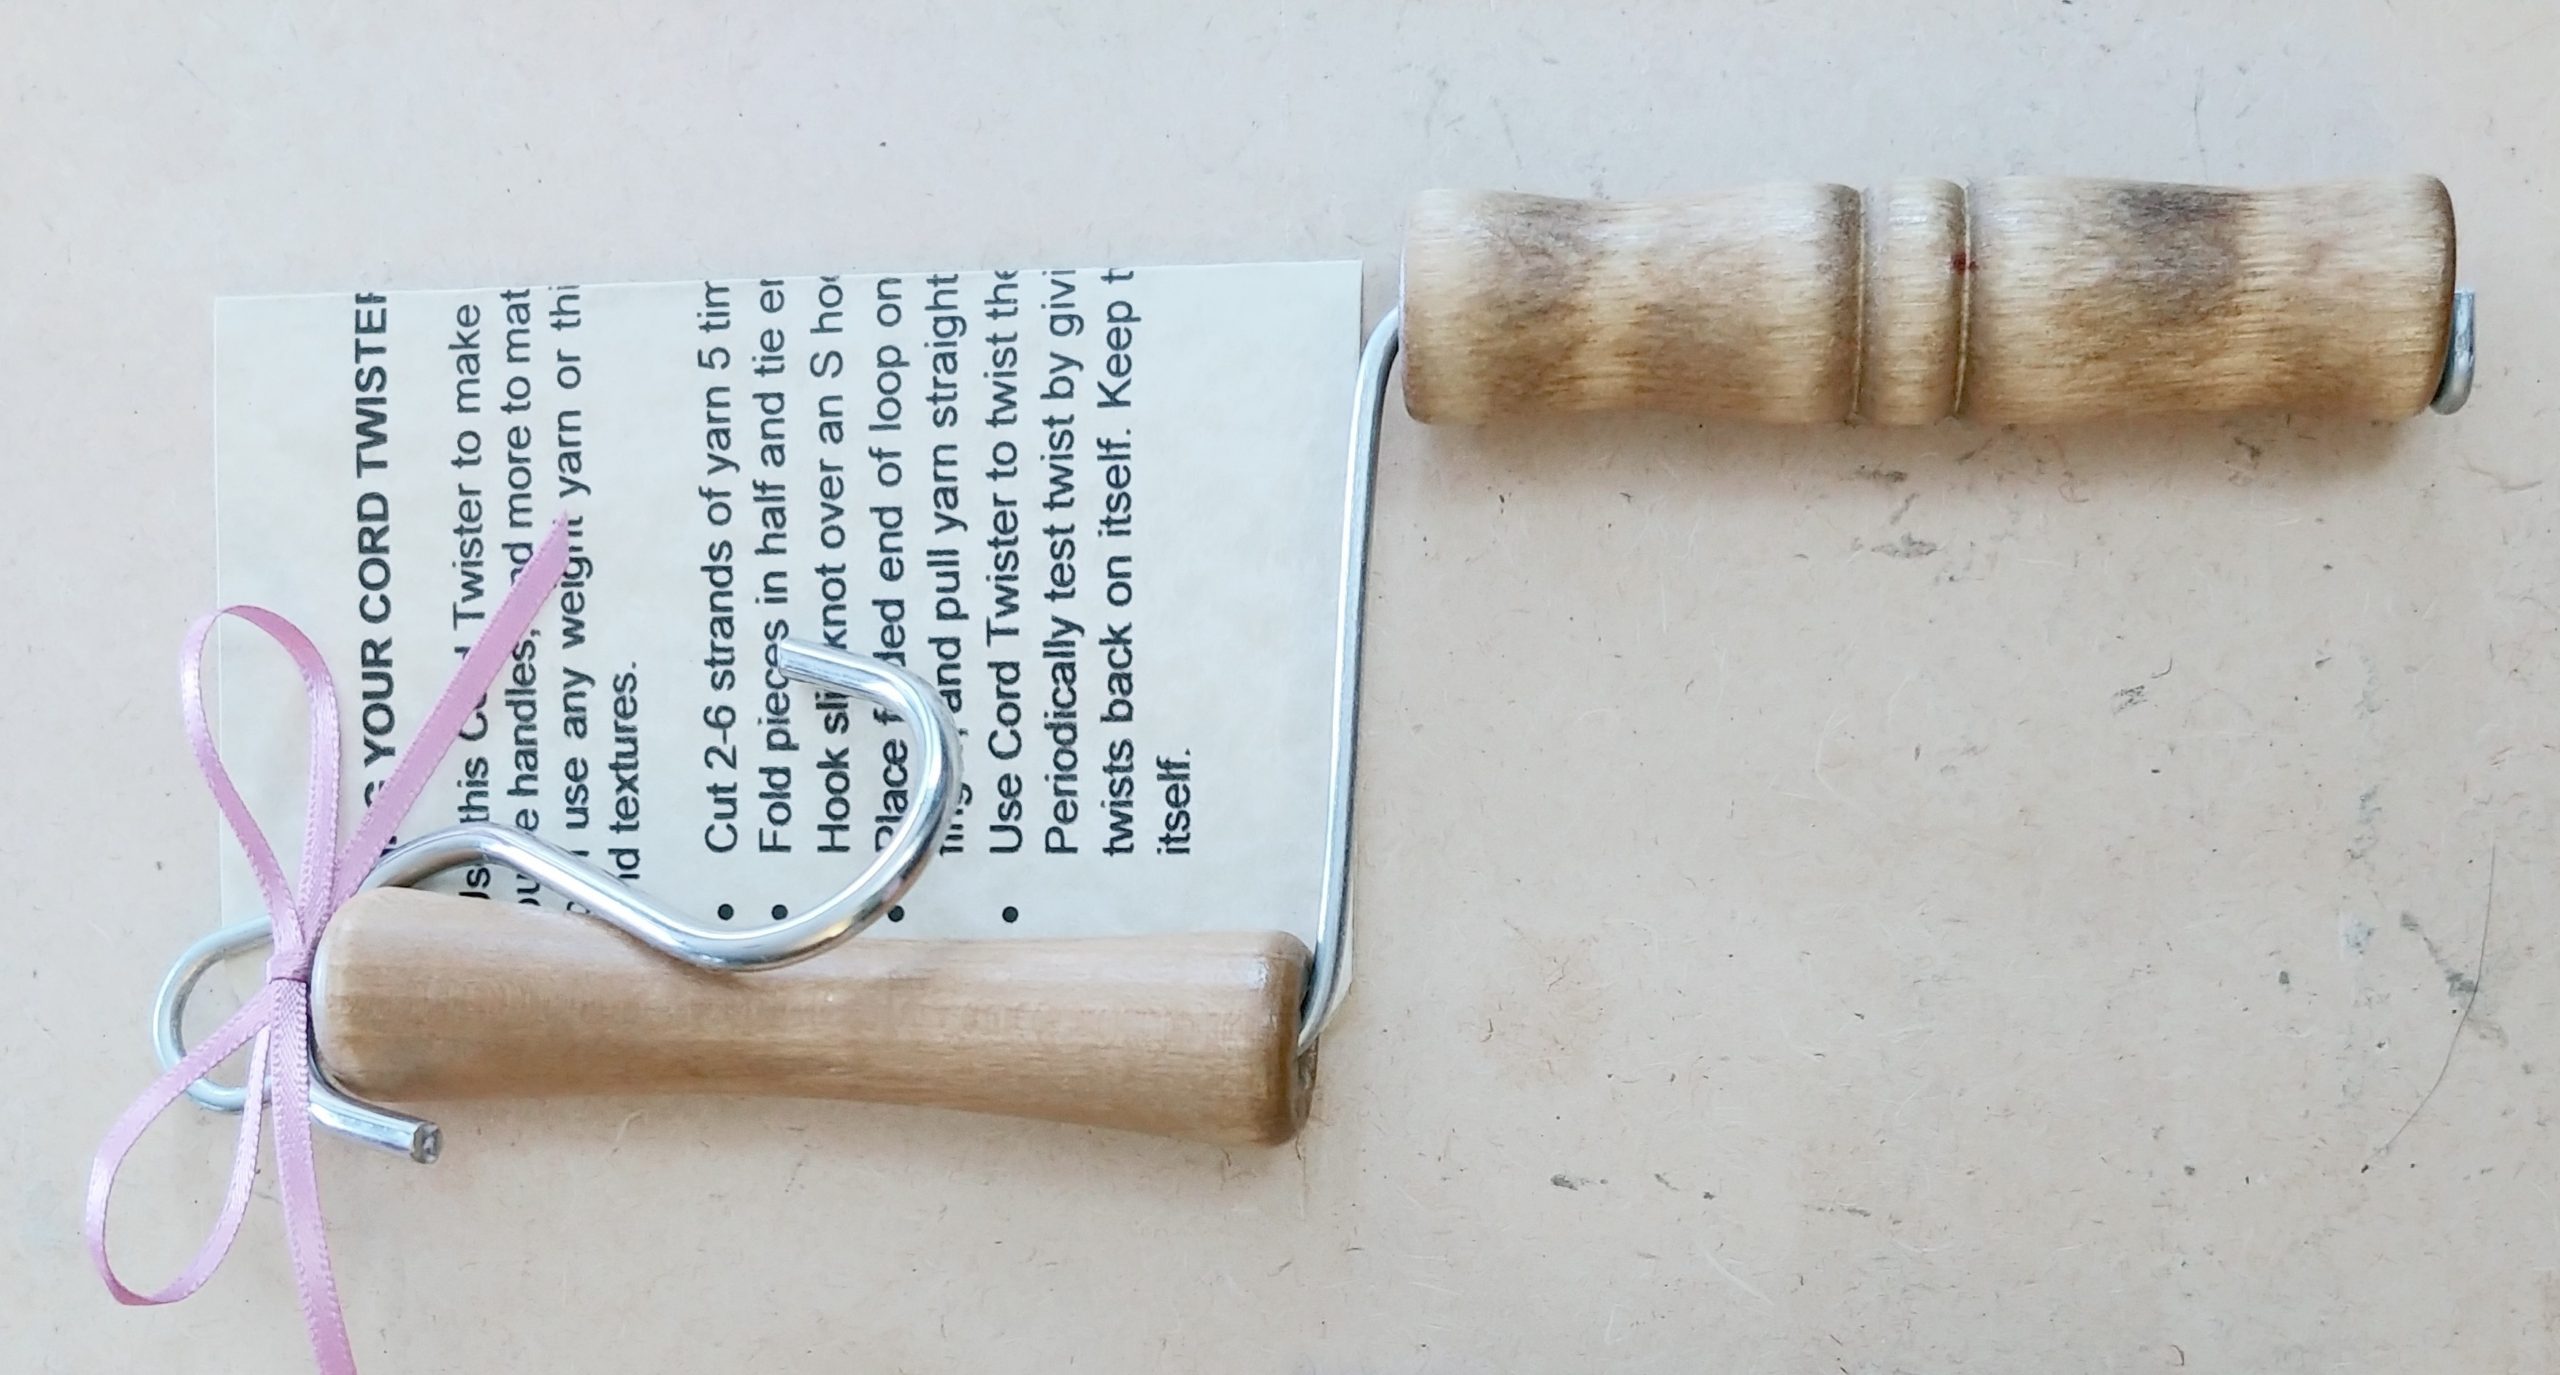 YOUR CORD TWISTER
this Twister to make
handles, and more to mat
use any weight yarn or thi
textures.
• Cut 2-6 strands of yarn 5 tim
• Fold pieces in half and tie en
Hook slip knot over an S hoo
• Place folded end of loop on
and pull yarn straight
• Use Cord Twister to twist the
Periodically test twist by givi
twists back on itself. Keep t
itself.